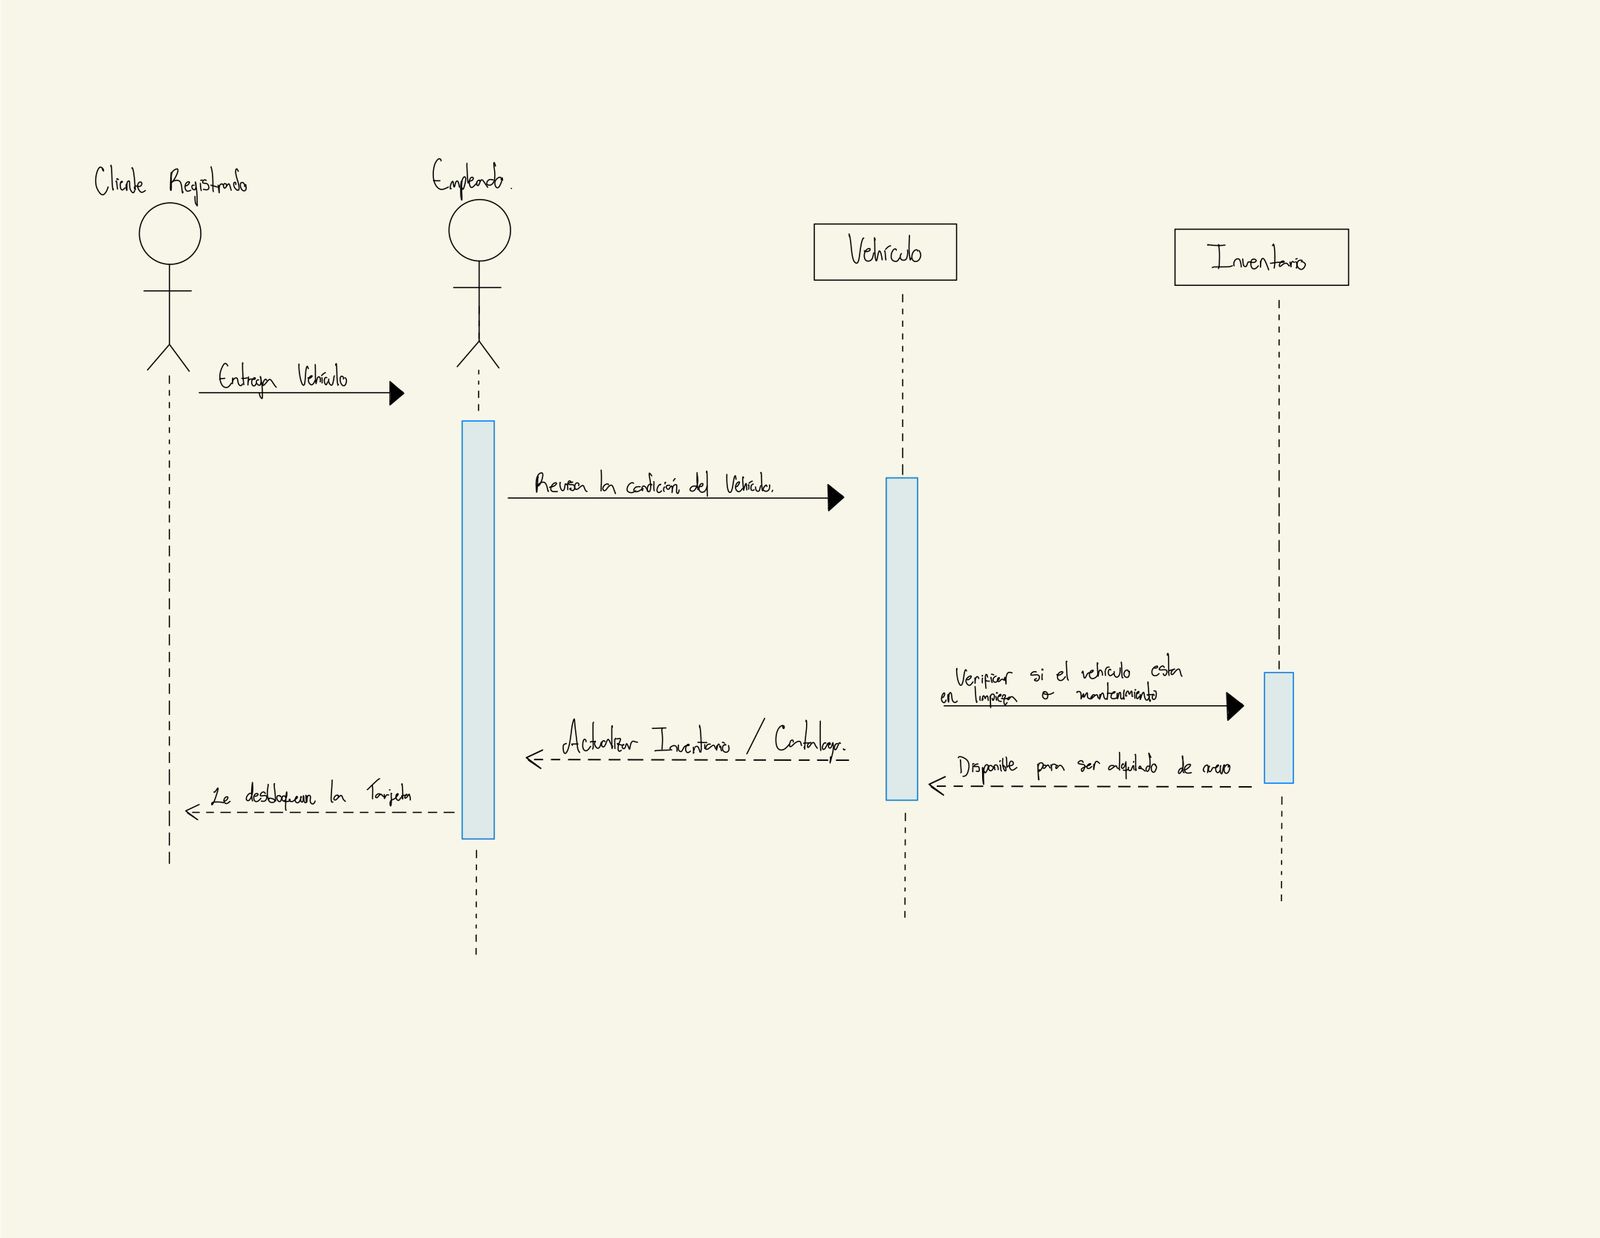 Cliente Registrado
Empleado.
Vehículo
Inventario
Entrega Vehículo
Revisa la condición del Vehículo.
Verificar si el vehículo esta
en limpieza o mantenimiento
Actualizar Inventario / Catalogo.
Disponible para ser alquilado de nuevo
Le desbloquean la Tarjeta